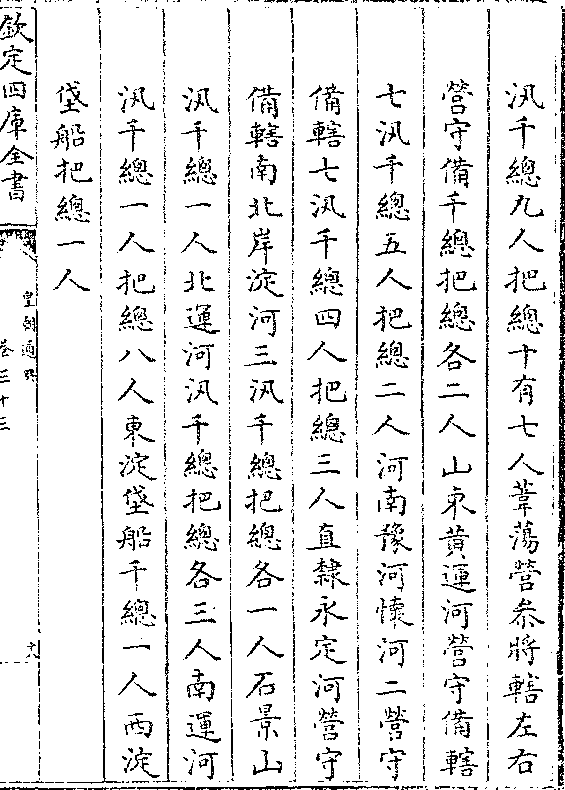 汛千總九人把總十有七人葦蕩營叅將轄左右
營守備千總把總各二人山東黄運河營守備轄
七汛千總五人把總二人河南豫河懷河二營守
備轄七汛千總四人把總三人直隸永定河營守
備轄南北岸淀河三汛千總把總各一人石景山
汛千總一人北運河汛千總把總各三人南運河
汛千總一人把總八人東淀垡船千總一人西淀
垡船把總一人
欽定四庫全書
皇朝通典
卷三十三